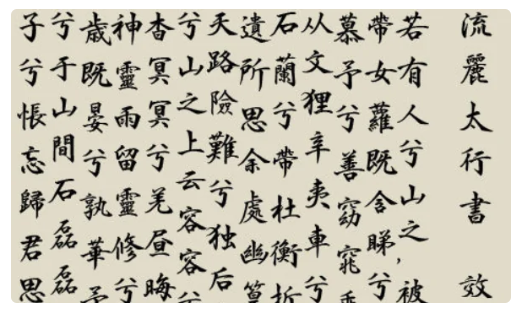 流麗太行書 效
若有人兮山之，被
帶女蘿既含睇兮
慕予兮善窈窕乘
从文狸辛夷車兮
石蘭兮帶杜衡折
遺所思余處幽篁
天路險難兮独后
兮山之上云容容兮
杳冥冥兮羌昼晦
神靈雨留靈修兮
歳既晏兮孰華予
兮于山間石磊磊
子兮悵忘歸君思